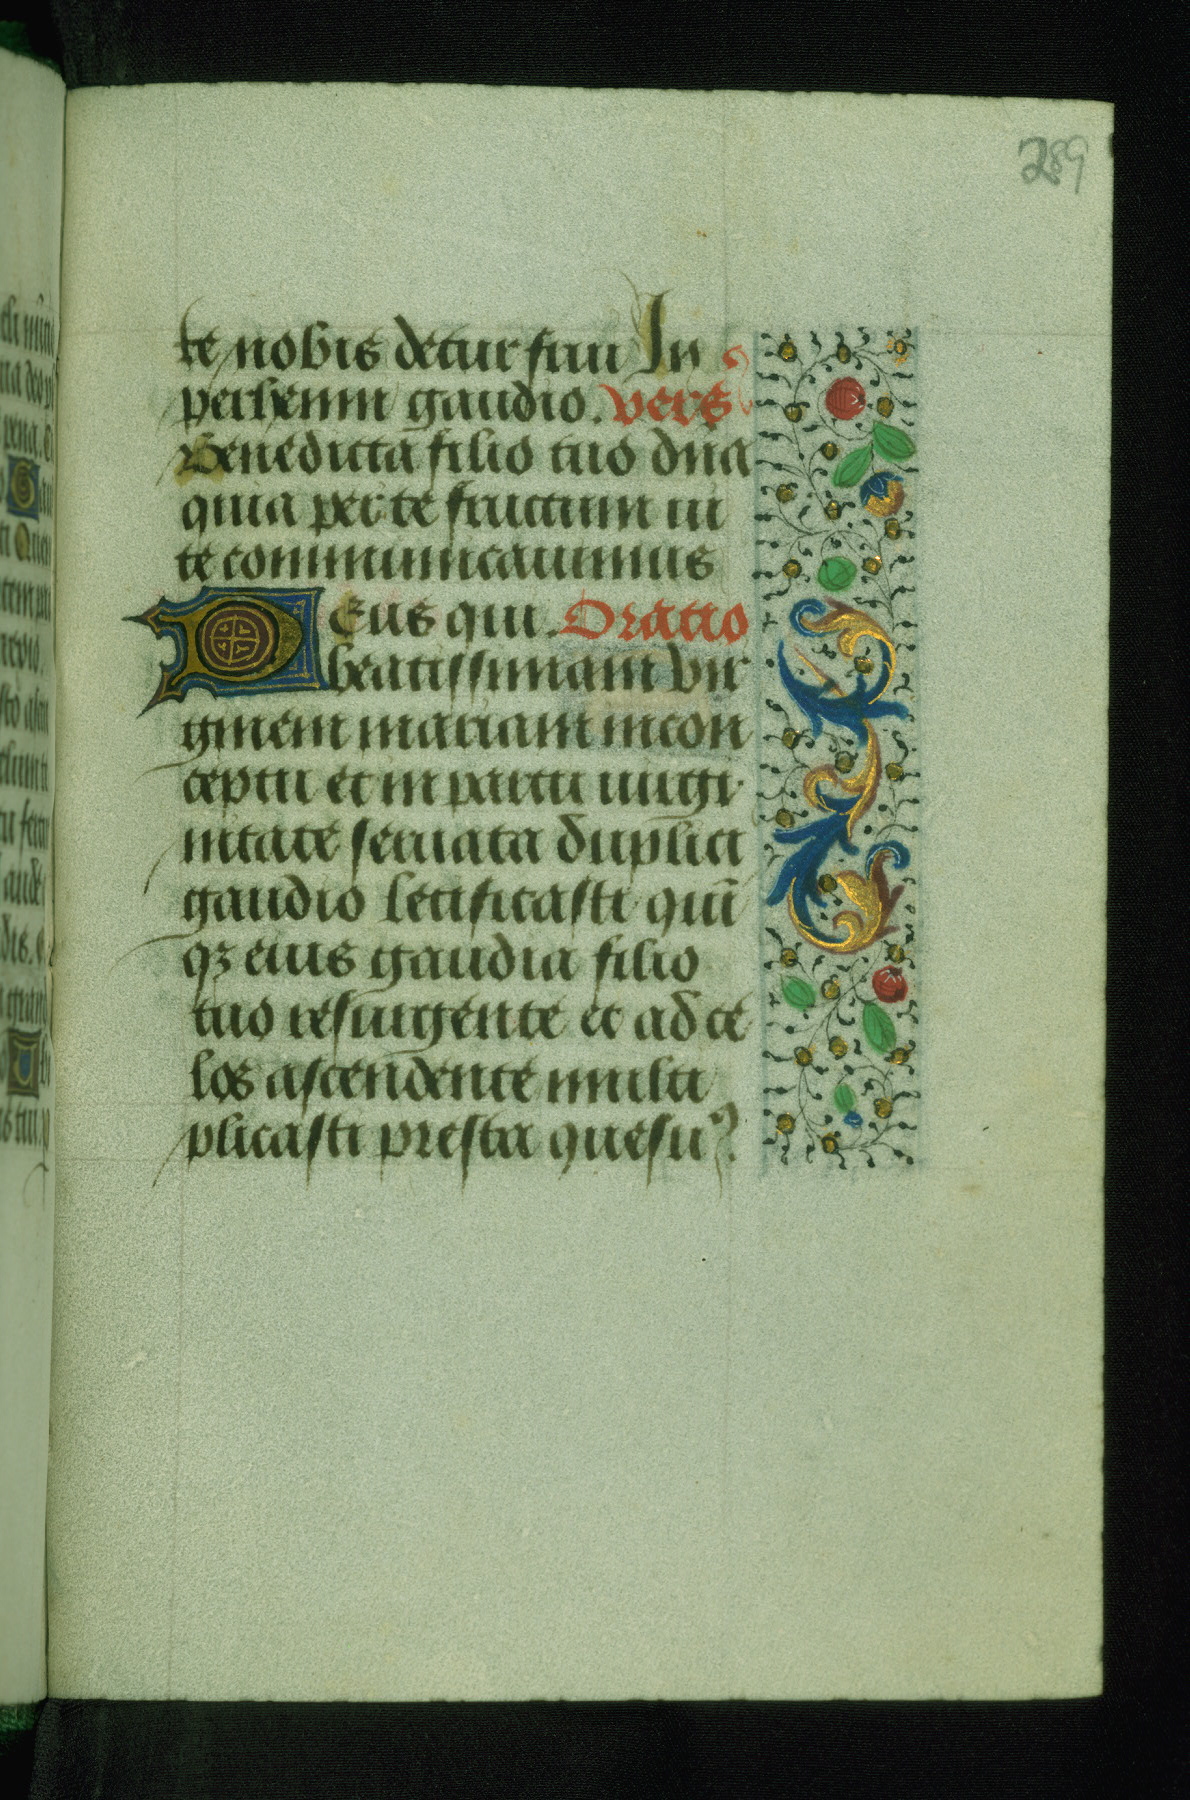 289
te nobis detur frui In
perhenni gaudio. vers
Benedicta filio tuo dn̄a
quia per te fructum ui
te communicauimus
Deus qui. Oratio
beatissimam vir
ginem mariam in con
ceptu et in partu uirgi
nitate seruata duplici
gaudio letificasti qui
qꝫ eius gaudia filio
tuo resurgente et ad ce
los ascendente multi
plicasti presta quesu